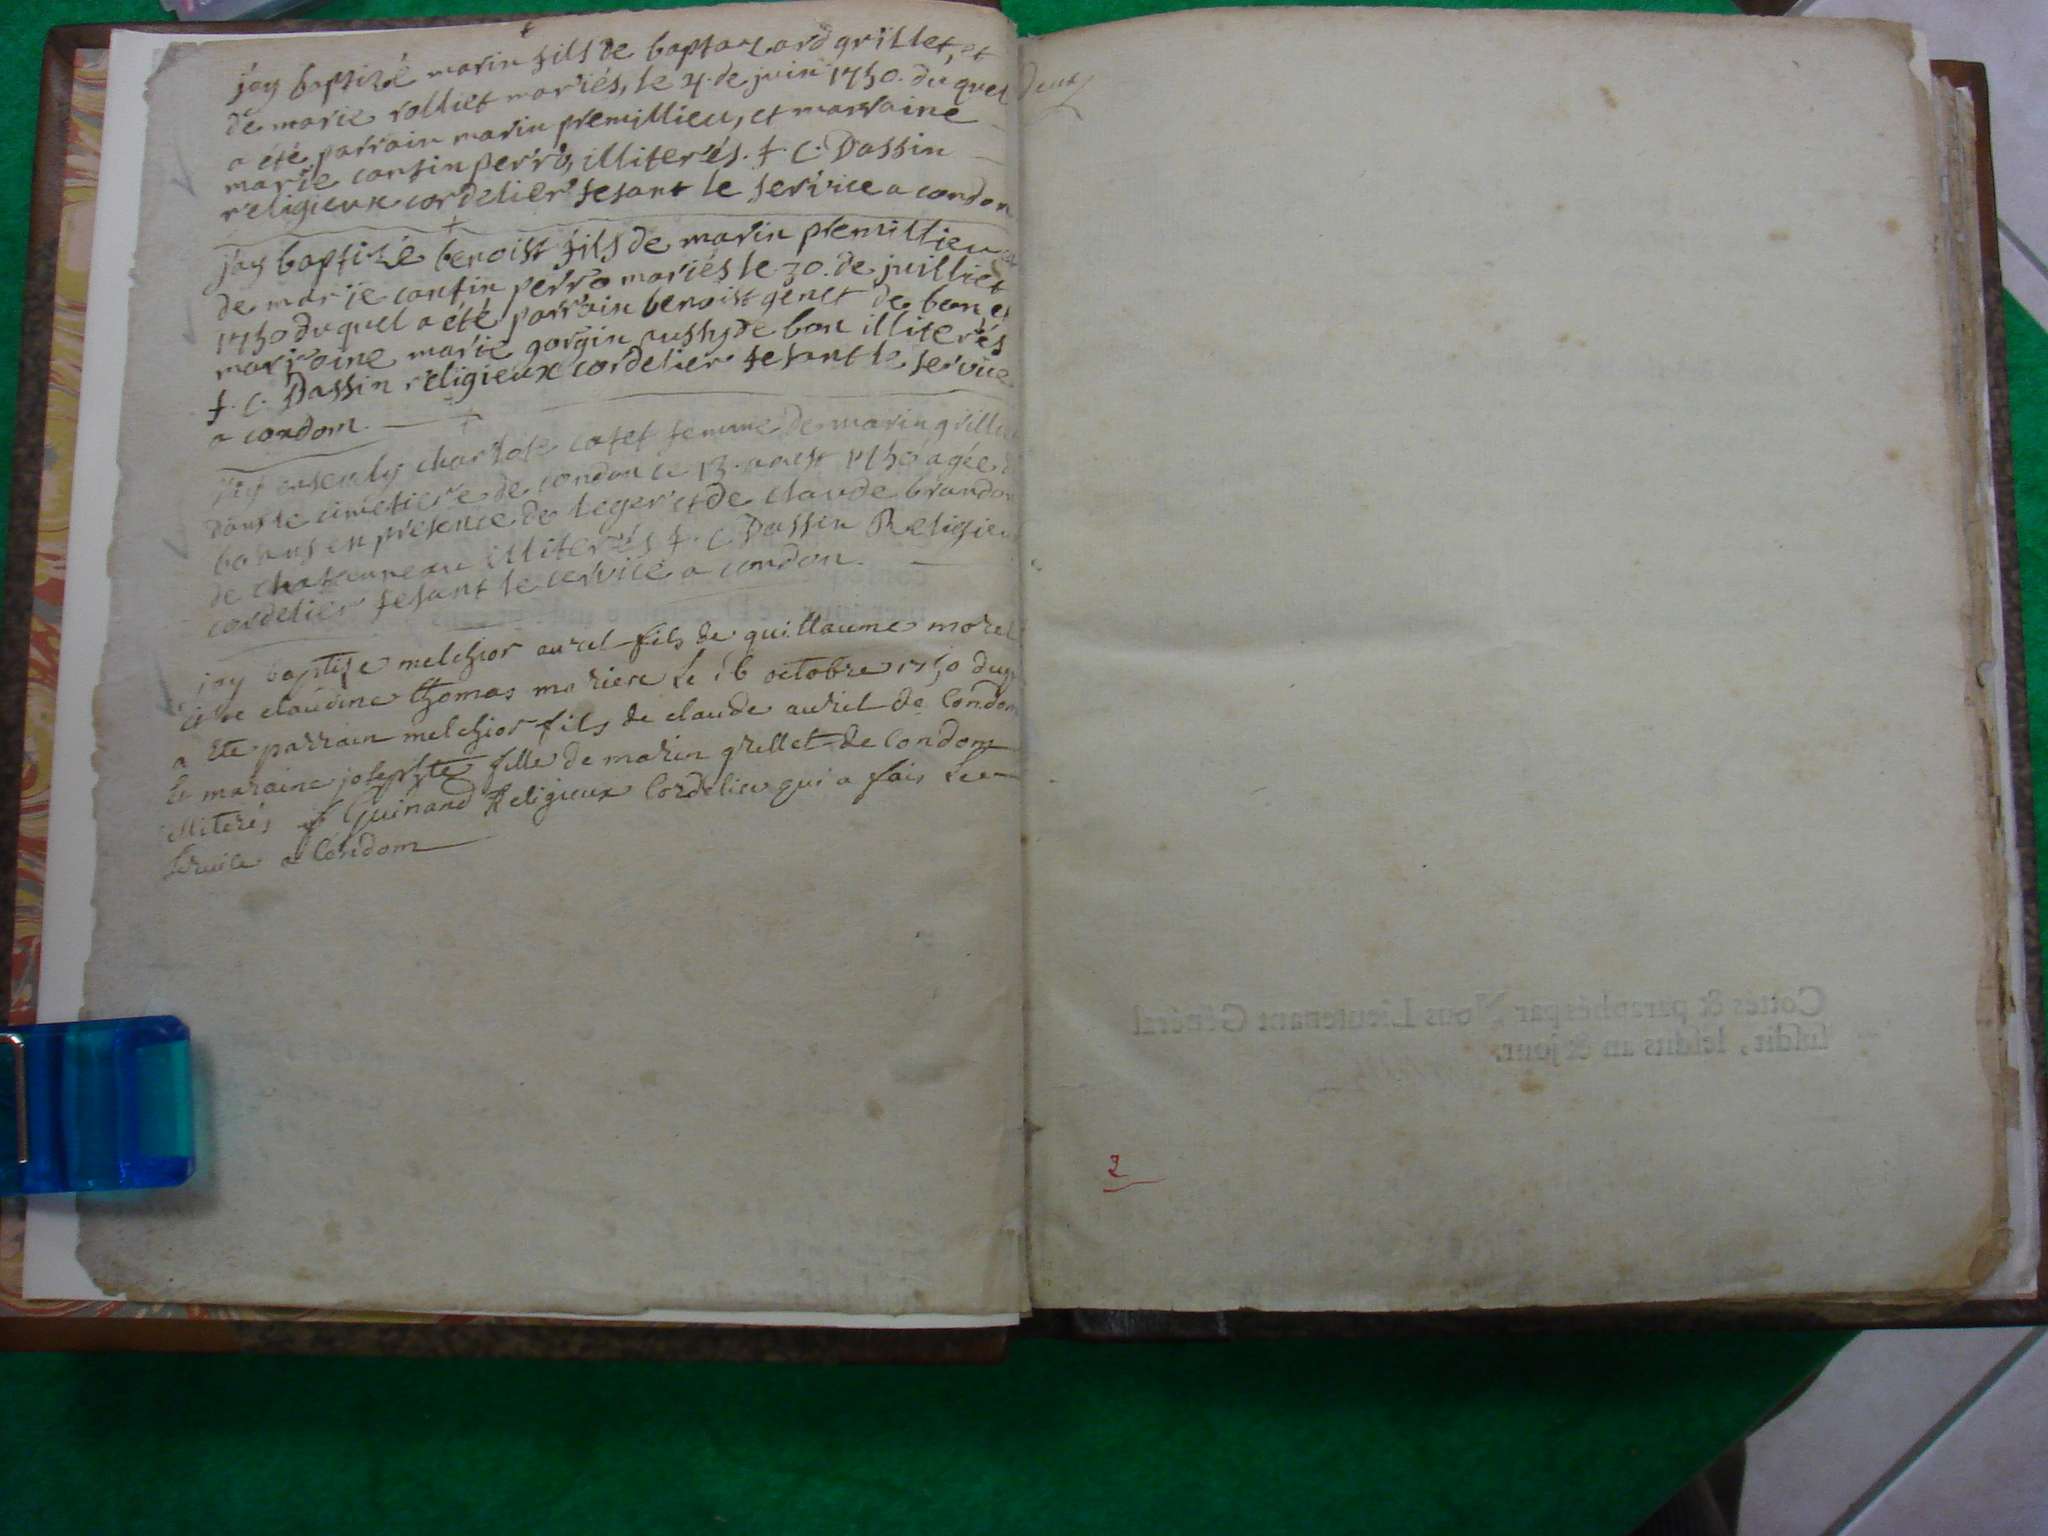 jay baptizé marin fils de baptazard grillet, et
de marie rolliet mariés, le 4. de juin 1750. du quel
a été parrain marin premillieu, et marraine
marie confin perro, illiterés. f. C. Dassin
religieux cordelier fesant le service a condon
jay baptizé benoist fils de marin premillieu et
de marie confin perro mariés le 30. de juilliet
1750 du quel a été parrain benoist genet de bon, et
marraine marie gorgin de bon illiterés
f. C. Dassin religieux cordelier fesant le service
a condom.
jay ensevely charlote cotet femme de marin grillet
dans le cimetiere de condon ce 13. aoust 1750 agée
en présence de leger et de claude brandon
de illiterés f. C. Dassin Religieu
cordelier fesant le cervice a condon.
jay baptise melchior aurel fils de guillaume morel
claudine thomas mariere Le 16 octobre 1750 duq
a Ete parrain melchior fils de claude auril de Condom
Et maraine josephte fille de marin grillet de Condom
illiterés f Guinand Religieux Cordelier qui a fais Le
service a Condom
deux
Cottés & paraphés par Nous Lieutenant Général
susdit, lesdits an & jour.
2